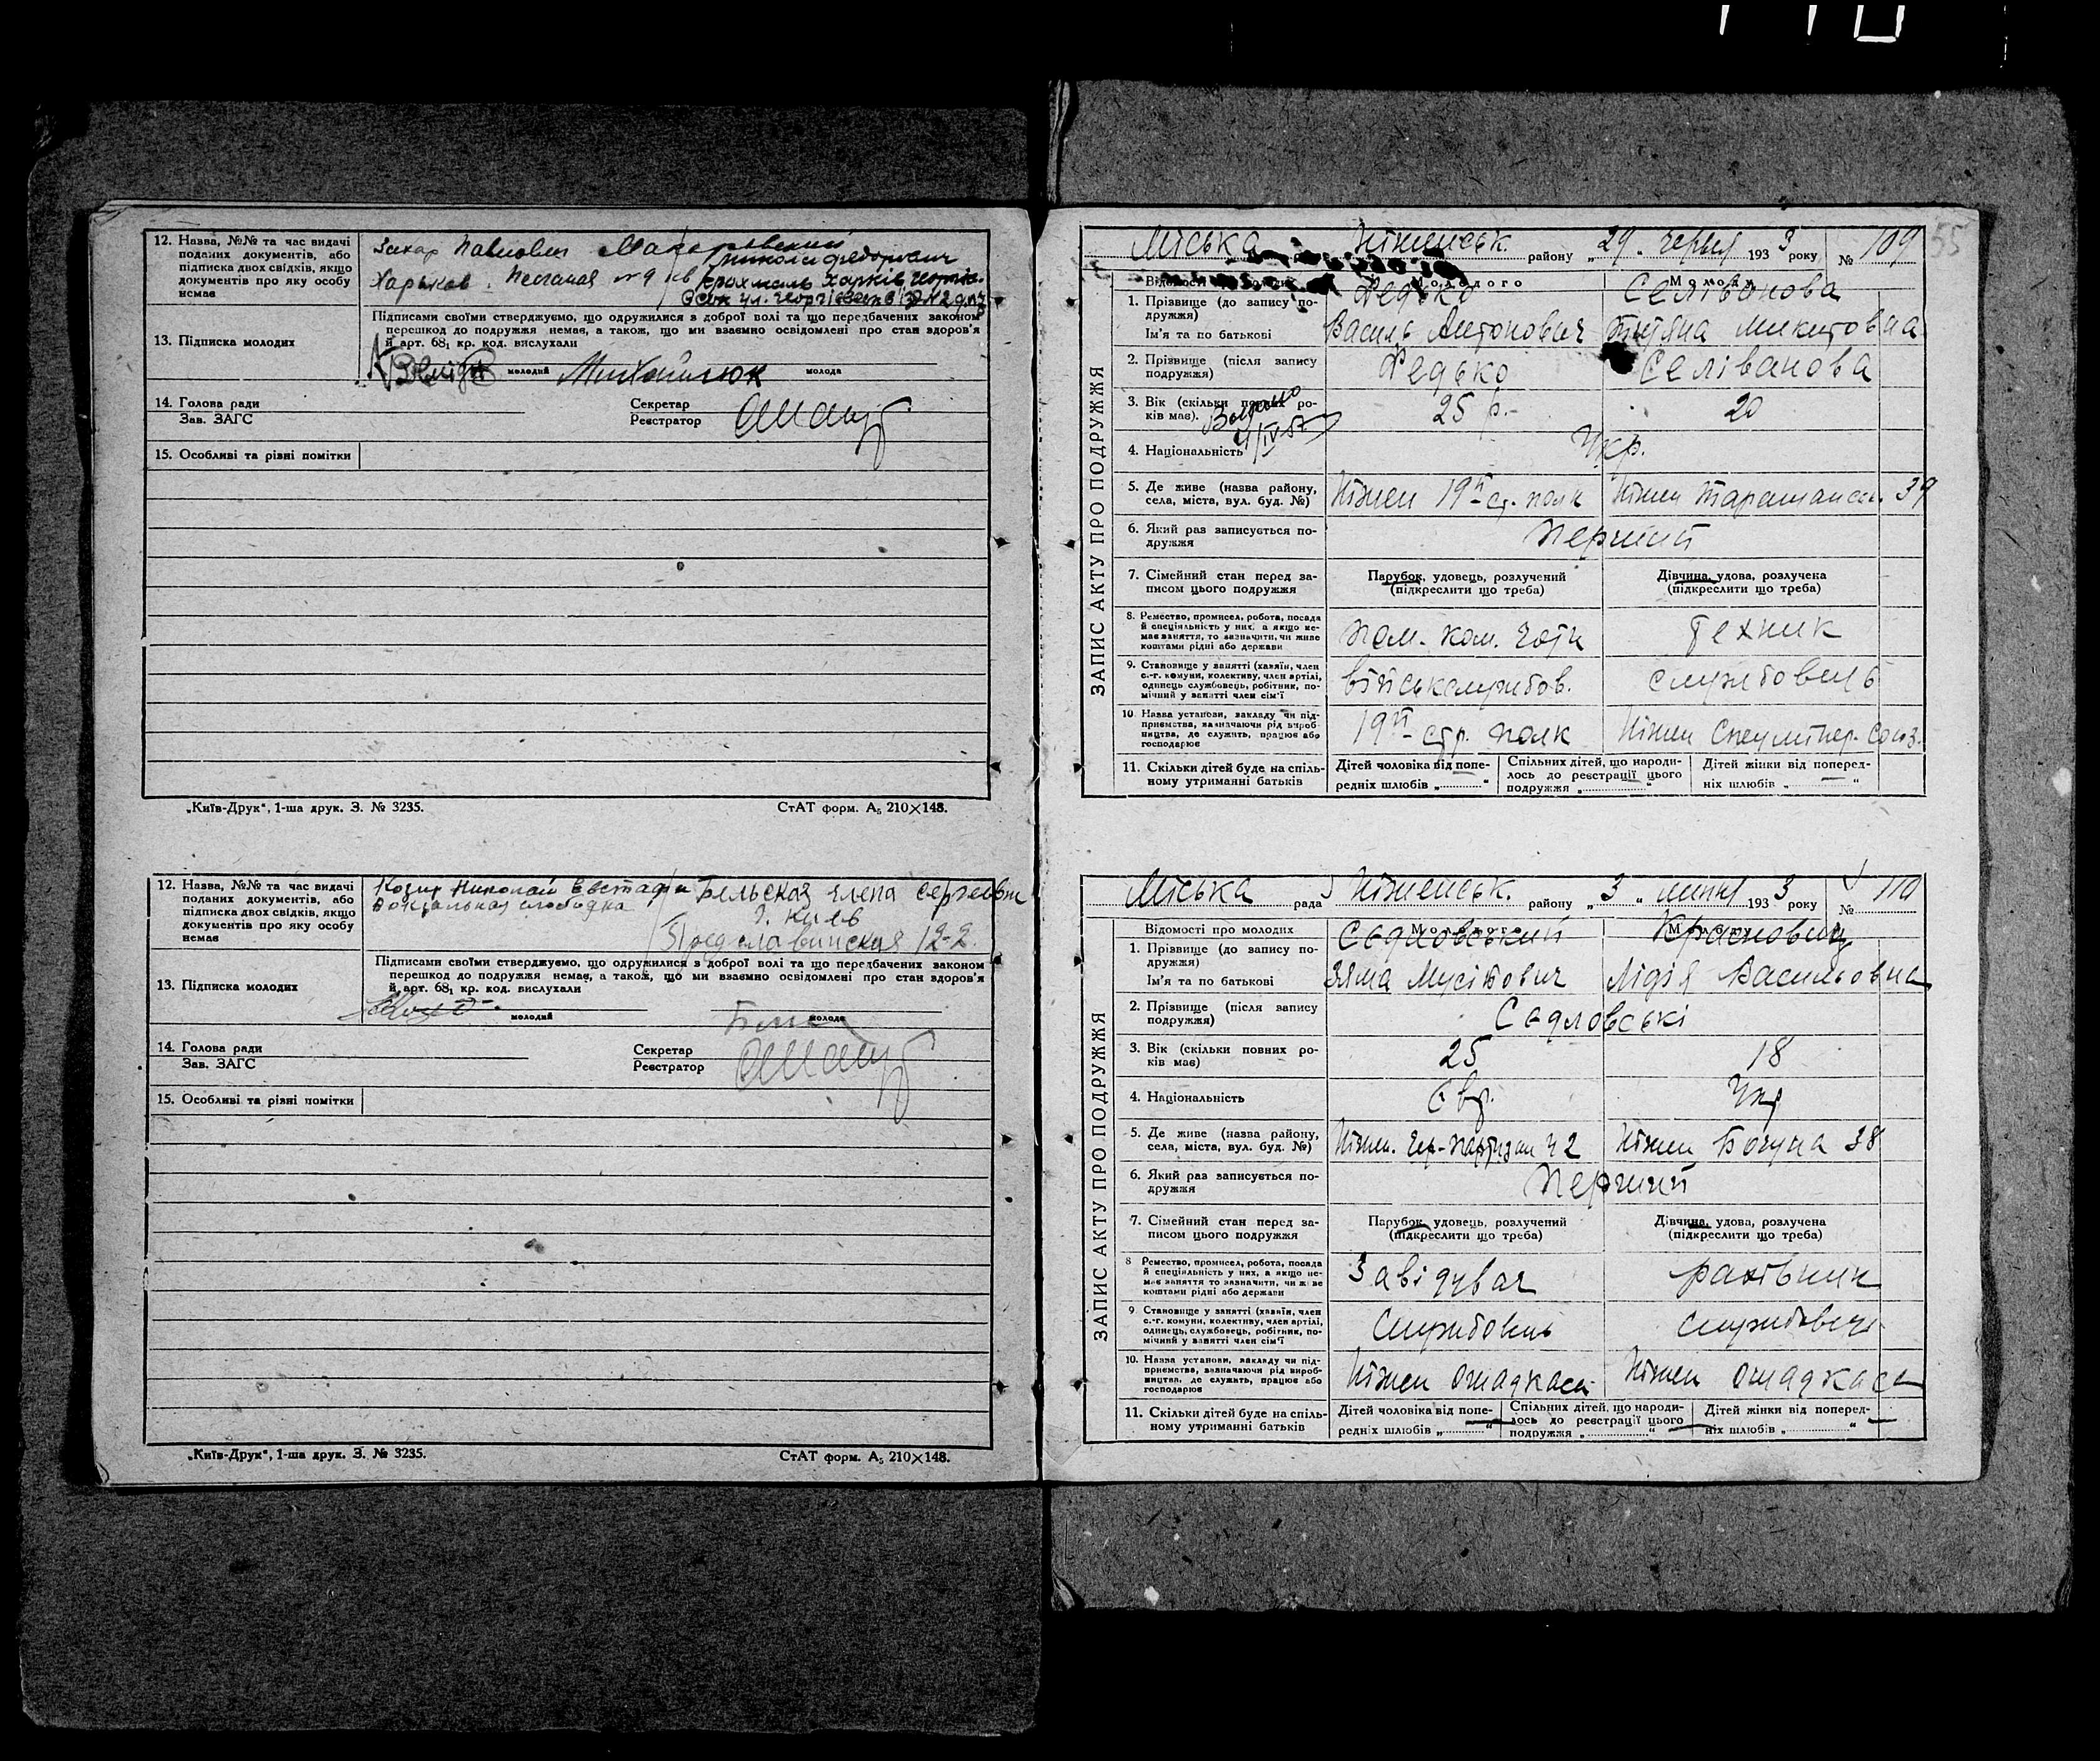 12. Назва, №№ та час видачі поданих документів, або підписка двох свідків, якщо документів про яку особу немає
Захар Павлович Макаровский
Харьков. Песчаная №9 кв
13. Підписка молодих
Підписами своїми стверджуємо, що одружилися з доброї волі та що передбачених законом
перешкод до подружжя немає, а також, що ми взаємно освідомлені про стан здоров'я
й арт. 68, кр. код. вислухали
молодий
молода
14. Голова ради
Зав. ЗАГС
Секретар
Реєстратор
15. Особливі та різні помітки
„Київ-Друк“, 1-ша друк. З. № 3235.
СтАТ форм. А₅ 210×148.
12. Назва, №№ та час видачі поданих документів, або підписка двох свідків, якщо документів про яку особу немає
Николай Бельская Елена Сергеевна
г. Киев
Предславинская 12-2.
13. Підписка молодих
Підписами своїми стверджуємо, що одружилися з доброї волі та що передбачених законом
перешкод до подружжя немає, а також, що ми взаємно освідомлені про стан здоров'я
й арт. 68, кр. код. вислухали
молодий
молода
14. Голова ради
Зав. ЗАГС
Секретар
Реєстратор
15. Особливі та різні помітки
„Київ-Друк“, 1-ша друк. З. № 3235.
СтАТ форм. А₅ 210×148.
110
55
ЗАПИС АКТУ ПРО ПОДРУЖЖЯ
Міська Ніженськ. району „29„ червня 1933 року № 109
Молодого Молодої
1. Прізвище (до запису подружжя) Редько Селіванова
Ім'я та по батькові Василь Антонович Тетяна Микитовна
2. Прізвище (після запису подружжя) Редько Селіванова
3. Вік (скільки повних років має). 25 р. 20
4/IV-57
4. Національність Укр.
5. Де живе (назва району, села, міста, вул. буд. №) Ніжен 19й ст. полк Ніжен Таращанськ. 39
6. Який раз записується подружжя перший
7. Сімейний стан перед записом цього подружжя Парубок, удовець, розлучений (підкреслити що треба) Дівчина, удова, розлучена (підкреслити що треба)
8. Ремество, промисел, робота, посада й спеціяльність у них, а якщо немає заняття, то зазначити, чи живе коштами рідні або держави пом. ком. чоти технік
9. Становище у занятті (хазяїн, член с.-г. комуни, колективу, член артілі, одинець, службовець, робітник, помічний у занятті член сім'ї військслужбов. службовець
10. Назва установи, закладу чи підприємства, зазначаючи рід виробництва, де служить, працює або господарює 19й стр. полк Ніжен Союз.
11. Скільки дітей буде на спільному утриманні батьків Дітей чоловіка від попередніх шлюбів „ “ Спільних дітей, що народилось до реєстрації цього подружжя „ “ Дітей жінки від попередніх шлюбів „ “
ЗАПИС АКТУ ПРО ПОДРУЖЖЯ
Міська рада Ніженськ. району „3„ липня 1933 року № 110
Відомості про молодих Молодого Молодої
1. Прізвище (до запису подружжя) Садловський
Ім'я та по батькові Зяма Лідія Васильовна
2. Прізвище (після запису подружжя) Садловські
3. Вік (скільки повних років має) 25 18
4. Національність Євр. Укр
5. Де живе (назва району, села, міста, вул. буд. №) Ніжен. Чер-партизан 42 Ніжен Богуна 38
6. Який раз записується подружжя перший
7. Сімейний стан перед записом цього подружжя Парубок, удовець, розлучений (підкреслити що треба) Дівчина, удова, розлучена (підкреслити що треба)
8 Ремество, промисел, робота, посада й спеціяльність у них, а якщо немає заняття то зазначити, чи живе коштами рідні або держави Завідувач рахівник
9 Становище у занятті (хазяїн, член с.-г. комуни, колективу, член артілі, одинець, службовець, робітник, помічний у занятті член сім'ї Службовець службовець
10. Назва установи, закладу чи підприємства, зазначаючи рід виробництва, де служить, працює або господарює Ніжен ощадкаса Ніжен ощадкаса
11. Скільки дітей буде на спільному утриманні батьків Дітей чоловіка від попередніх шлюбів „ “ Спільних дітей, що народилось до реєстрації цього подружжя „ “ Дітей жінки від попередніх шлюбів „ “